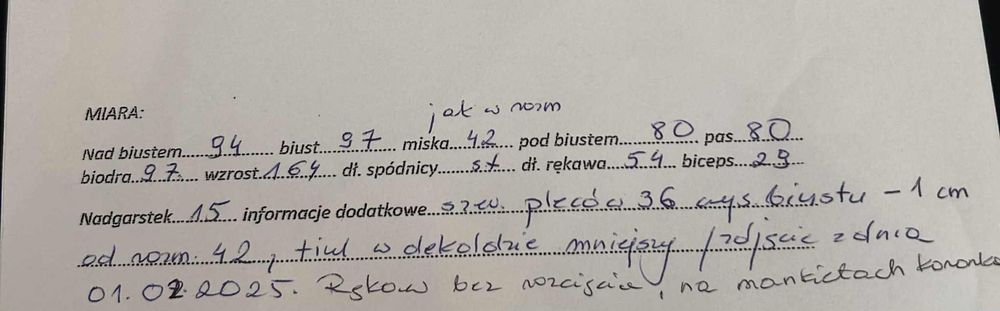 jak w rozm
MIARA:
Nad biustem...94... biust...97... miska...42... pod biustem...80... pas...80...
biodra...97... wzrost...164... dł. spódnicy...st... dł. rękawa...54... biceps...29...
Nadgarstek...15... informacje dodatkowe...szer. pleców 36 wys biustu - 1 cm
od rozm. 42, tiul w dekoldzie mniejszy /zdjęcie z dnia
01.02.2025. Rękaw bez rozcięcia, na mankietach koronka